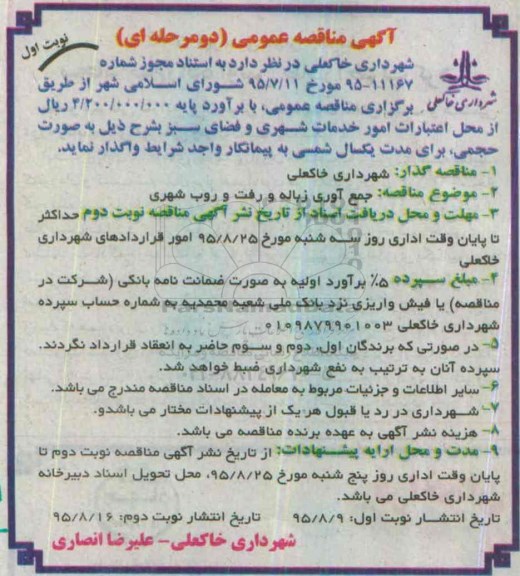 آگهی مناقصه عمومی (دومرحله ای)
نوبت اول
شهرداری خاکعلی
شهرداری خاکعلی در نظر دارد به استناد مجوز شماره
۹۵-۱۱۱۶۷ مورخ ۹۵/۷/۱۱ شورای اسلامی شهر از طریق
برگزاری مناقصه عمومی، با برآورد پایه ۴/۲۰۰/۰۰۰/۰۰۰ ریال
از محل اعتبارات امور خدمات شهری و فضای سبز بشرح ذیل به صورت
حجمی، برای مدت یکسال شمسی به پیمانکار واجد شرایط واگذار نماید.
۱- مناقصه گذار: شهرداری خاکعلی
۲- موضوع مناقصه: جمع آوری زباله و رفت و روب شهری
۳- مهلت و محل دریافت اسناد از تاریخ نشر آگهی مناقصه نوبت دوم حداکثر
تا پایان وقت اداری روز سه شنبه مورخ ۹۵/۸/۲۵ امور قراردادهای شهرداری
خاکعلی
۴- مبلغ سپرده ۵٪ برآورد اولیه به صورت ضمانت نامه بانکی (شرکت در
مناقصه) یا فیش واریزی نزد بانک ملی شعبه محمدیه به شماره حساب سپرده
شهرداری خاکعلی ۰۱۰۹۸۷۹۹۰۱۰۰۳
۵- در صورتی که برندگان اول، دوم و سوم حاضر به انعقاد قرارداد نگردند.
سپرده آنان به ترتیب به نفع شهرداری ضبط خواهد شد.
۶- سایر اطلاعات و جزئیات مربوط به معامله در اسناد مناقصه مندرج می باشد.
۷- شهرداری در رد یا قبول هر یک از پیشنهادات مختار می باشدو.
۸- هزینه نشر آگهی به عهده برنده مناقصه می باشد.
۹- مدت و محل ارایه پیشنهادات: از تاریخ نشر آگهی مناقصه نوبت دوم تا
پایان وقت اداری روز پنج شنبه مورخ ۹۵/۸/۲۵، محل تحویل اسناد دبیرخانه
شهرداری خاکعلی می باشد.
تاریخ انتشار نوبت اول: ۹۵/۸/۹ تاریخ انتشار نوبت دوم: ۹۵/۸/۱۶
شهرداری خاکعلی- علیرضا انصاری